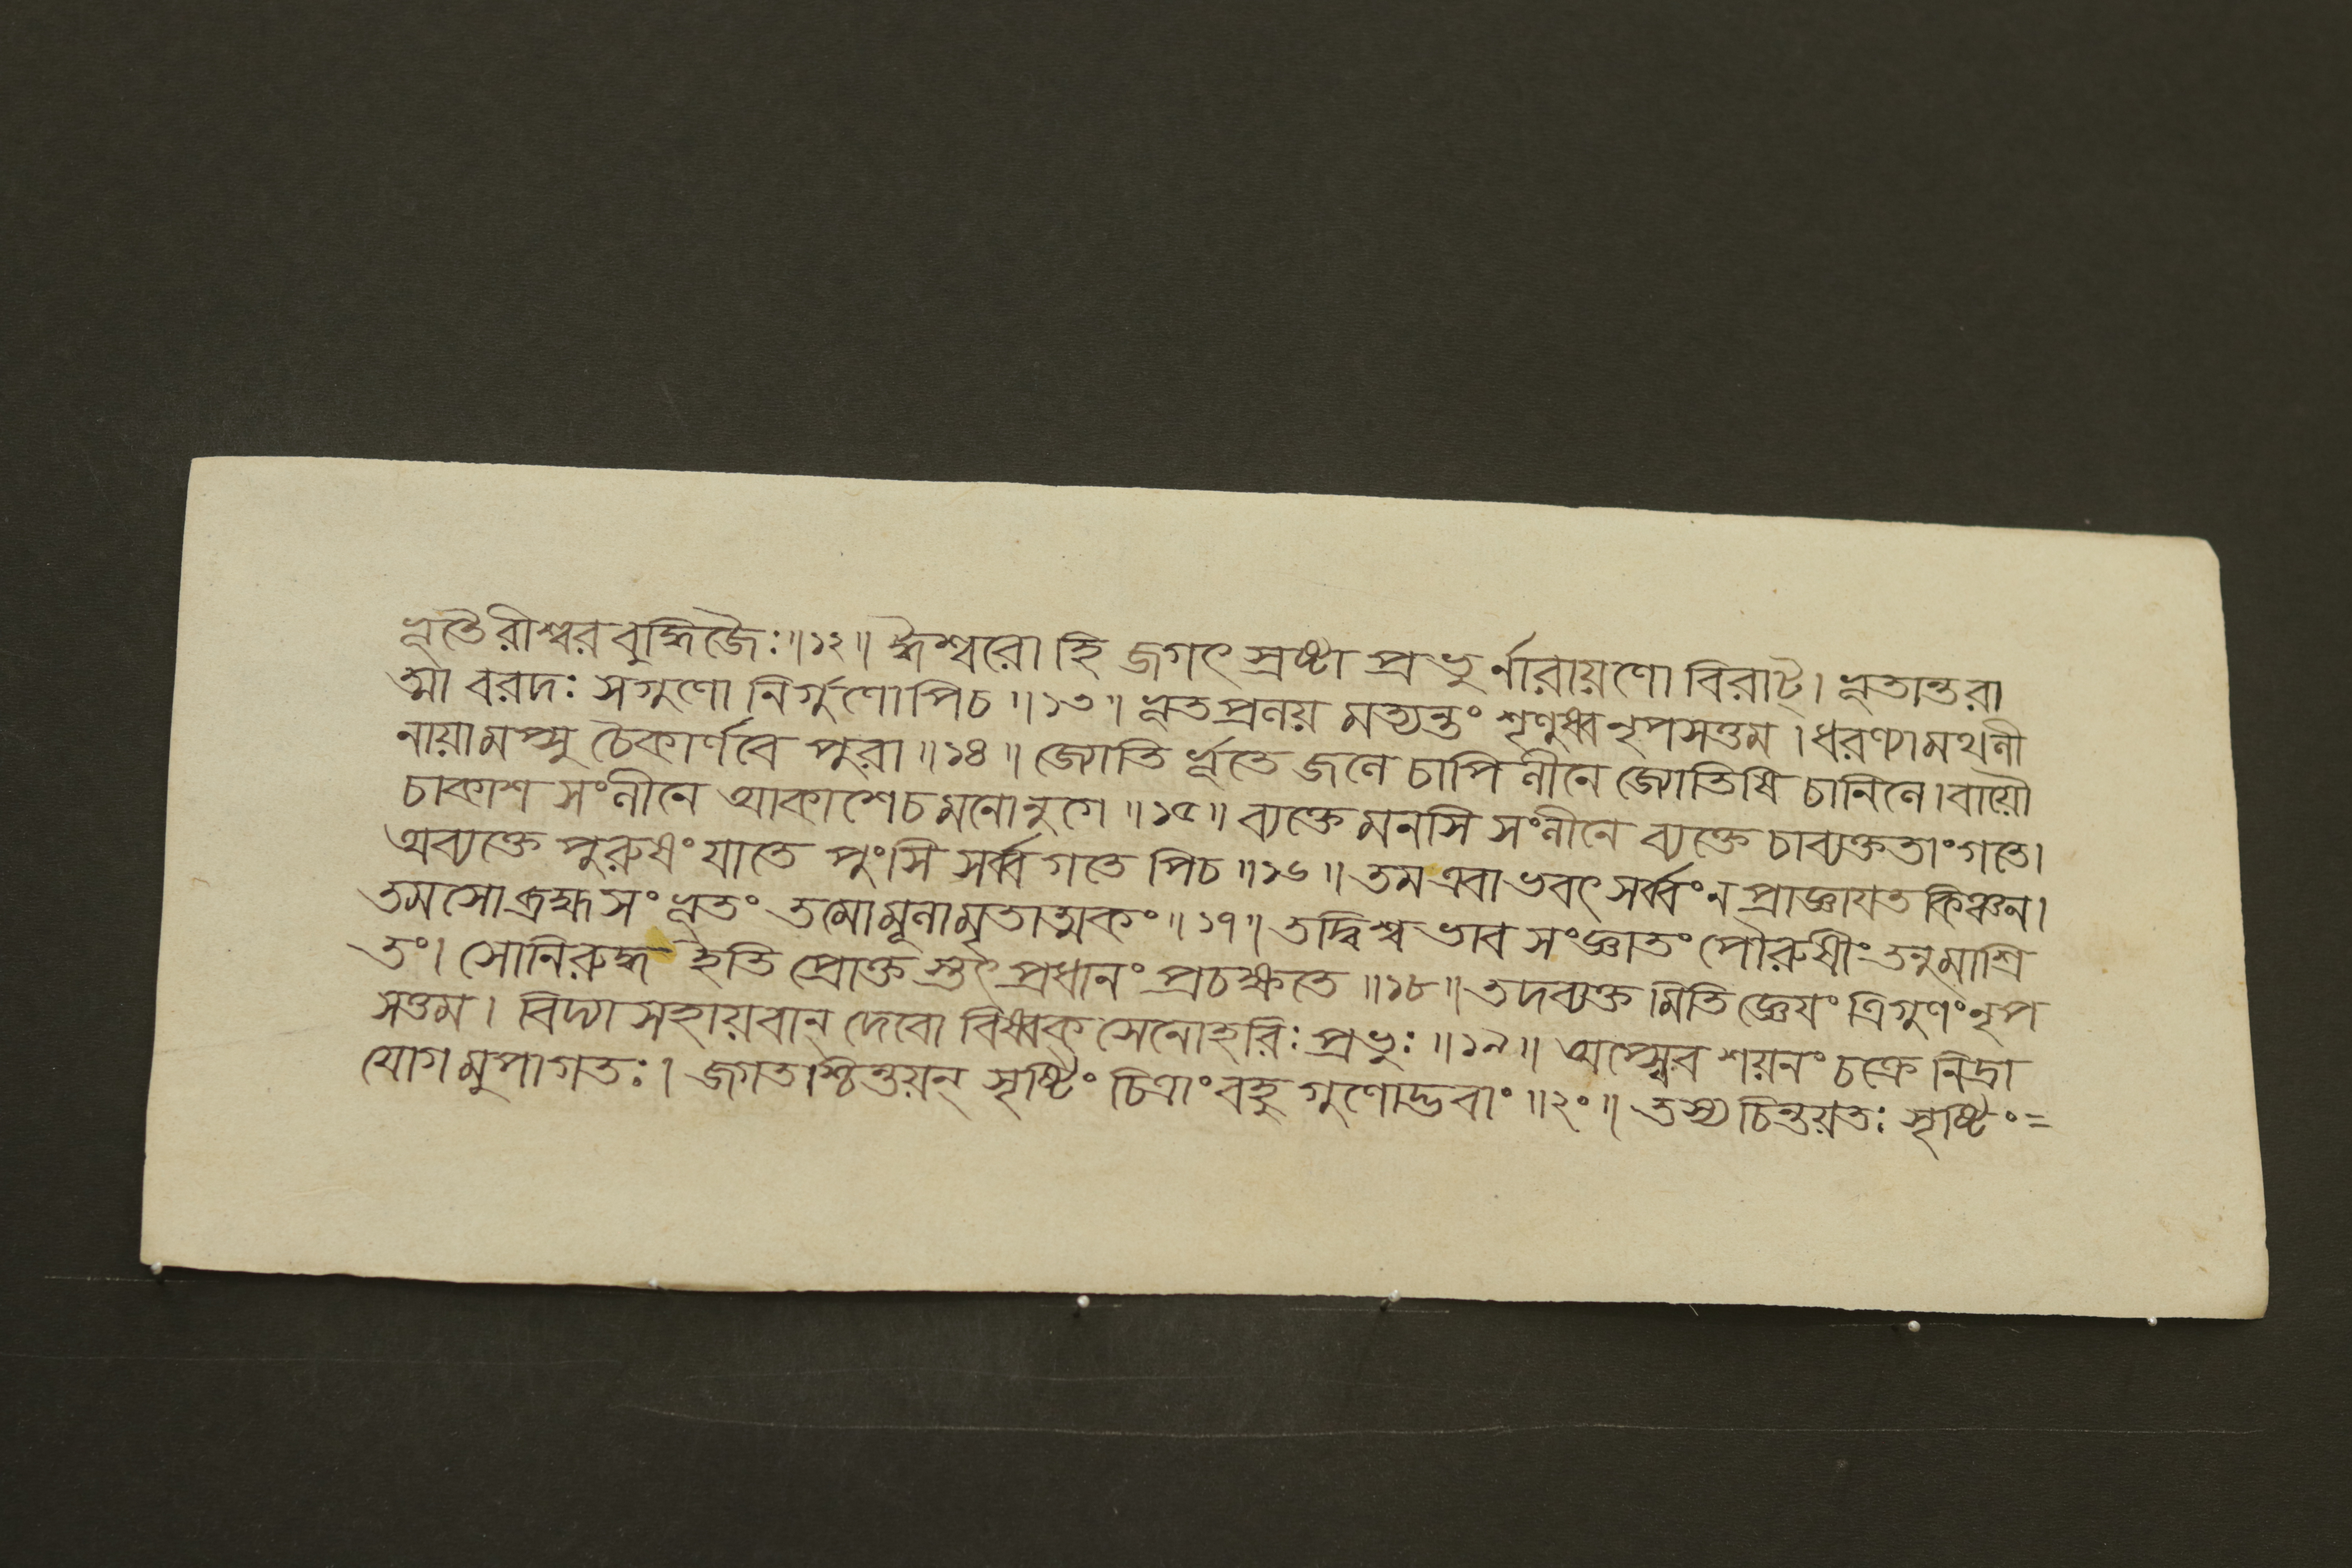 ভূতৈরীশ্বরবুদ্ধিজৈঃ॥১২॥ ঈশ্বরো হি জগৎ স্রষ্টা প্রভুর্নারায়ণো বিরাট্। ভূতান্তরা
ত্মা বরদঃ সগুণো নির্গুণোপিচ॥১৩॥ ভূতপ্রলয় মত্যন্তং শৃণুধ্ব নৃপসত্তম। ধরণ্যামথলী
নায়ামপ্সু চৈকার্ণবে পুরা॥১৪॥ জ্যোতির্ভূতে জলে চাপি লীনে জ্যোতিষি চানিলে। বায়ৌ
চাকাশ সংলীনে আকাশেচমনোনুগে॥১৫॥ ব্যক্তে মনসি সংলীনে ব্যক্তে চাব্যক্ততাংগতে।
অব্যক্তে পুরুষং যাতে পুংসি সর্ব্বগতেপিচ॥১৬॥ তমএবাভবৎ সর্ব্বং ন প্রাজ্ঞাযত কিঞ্চন।
তমসোব্রহ্মসংভূতং তমোমূলামৃতাত্মকং॥১৭॥ তদ্বিশ্বভাবসংজ্ঞাতং পৌরুষীং তনুমাশ্রি
তং। সোনিরুদ্ধ ইতি প্রোক্তস্তৎপ্রধানং প্রচক্ষতে॥১৮॥ তদব্যক্তমিতি জ্ঞেযং ত্রিগুণংনৃপ
সত্তম। বিদ্যাসহায়বান্ দেবো বিষ্বক্সেনোহরিঃ প্রভুঃ॥১৯॥ অপ্স্বেব শয়নং চক্রে নিদ্রা
যোগমুপাগতঃ। জগতশ্চিন্তয়ন্ সৃষ্টিং চিত্রাং বহুগুণোদ্ভবাং॥২০॥ তস্য চিন্তয়তঃ সৃষ্টিং=